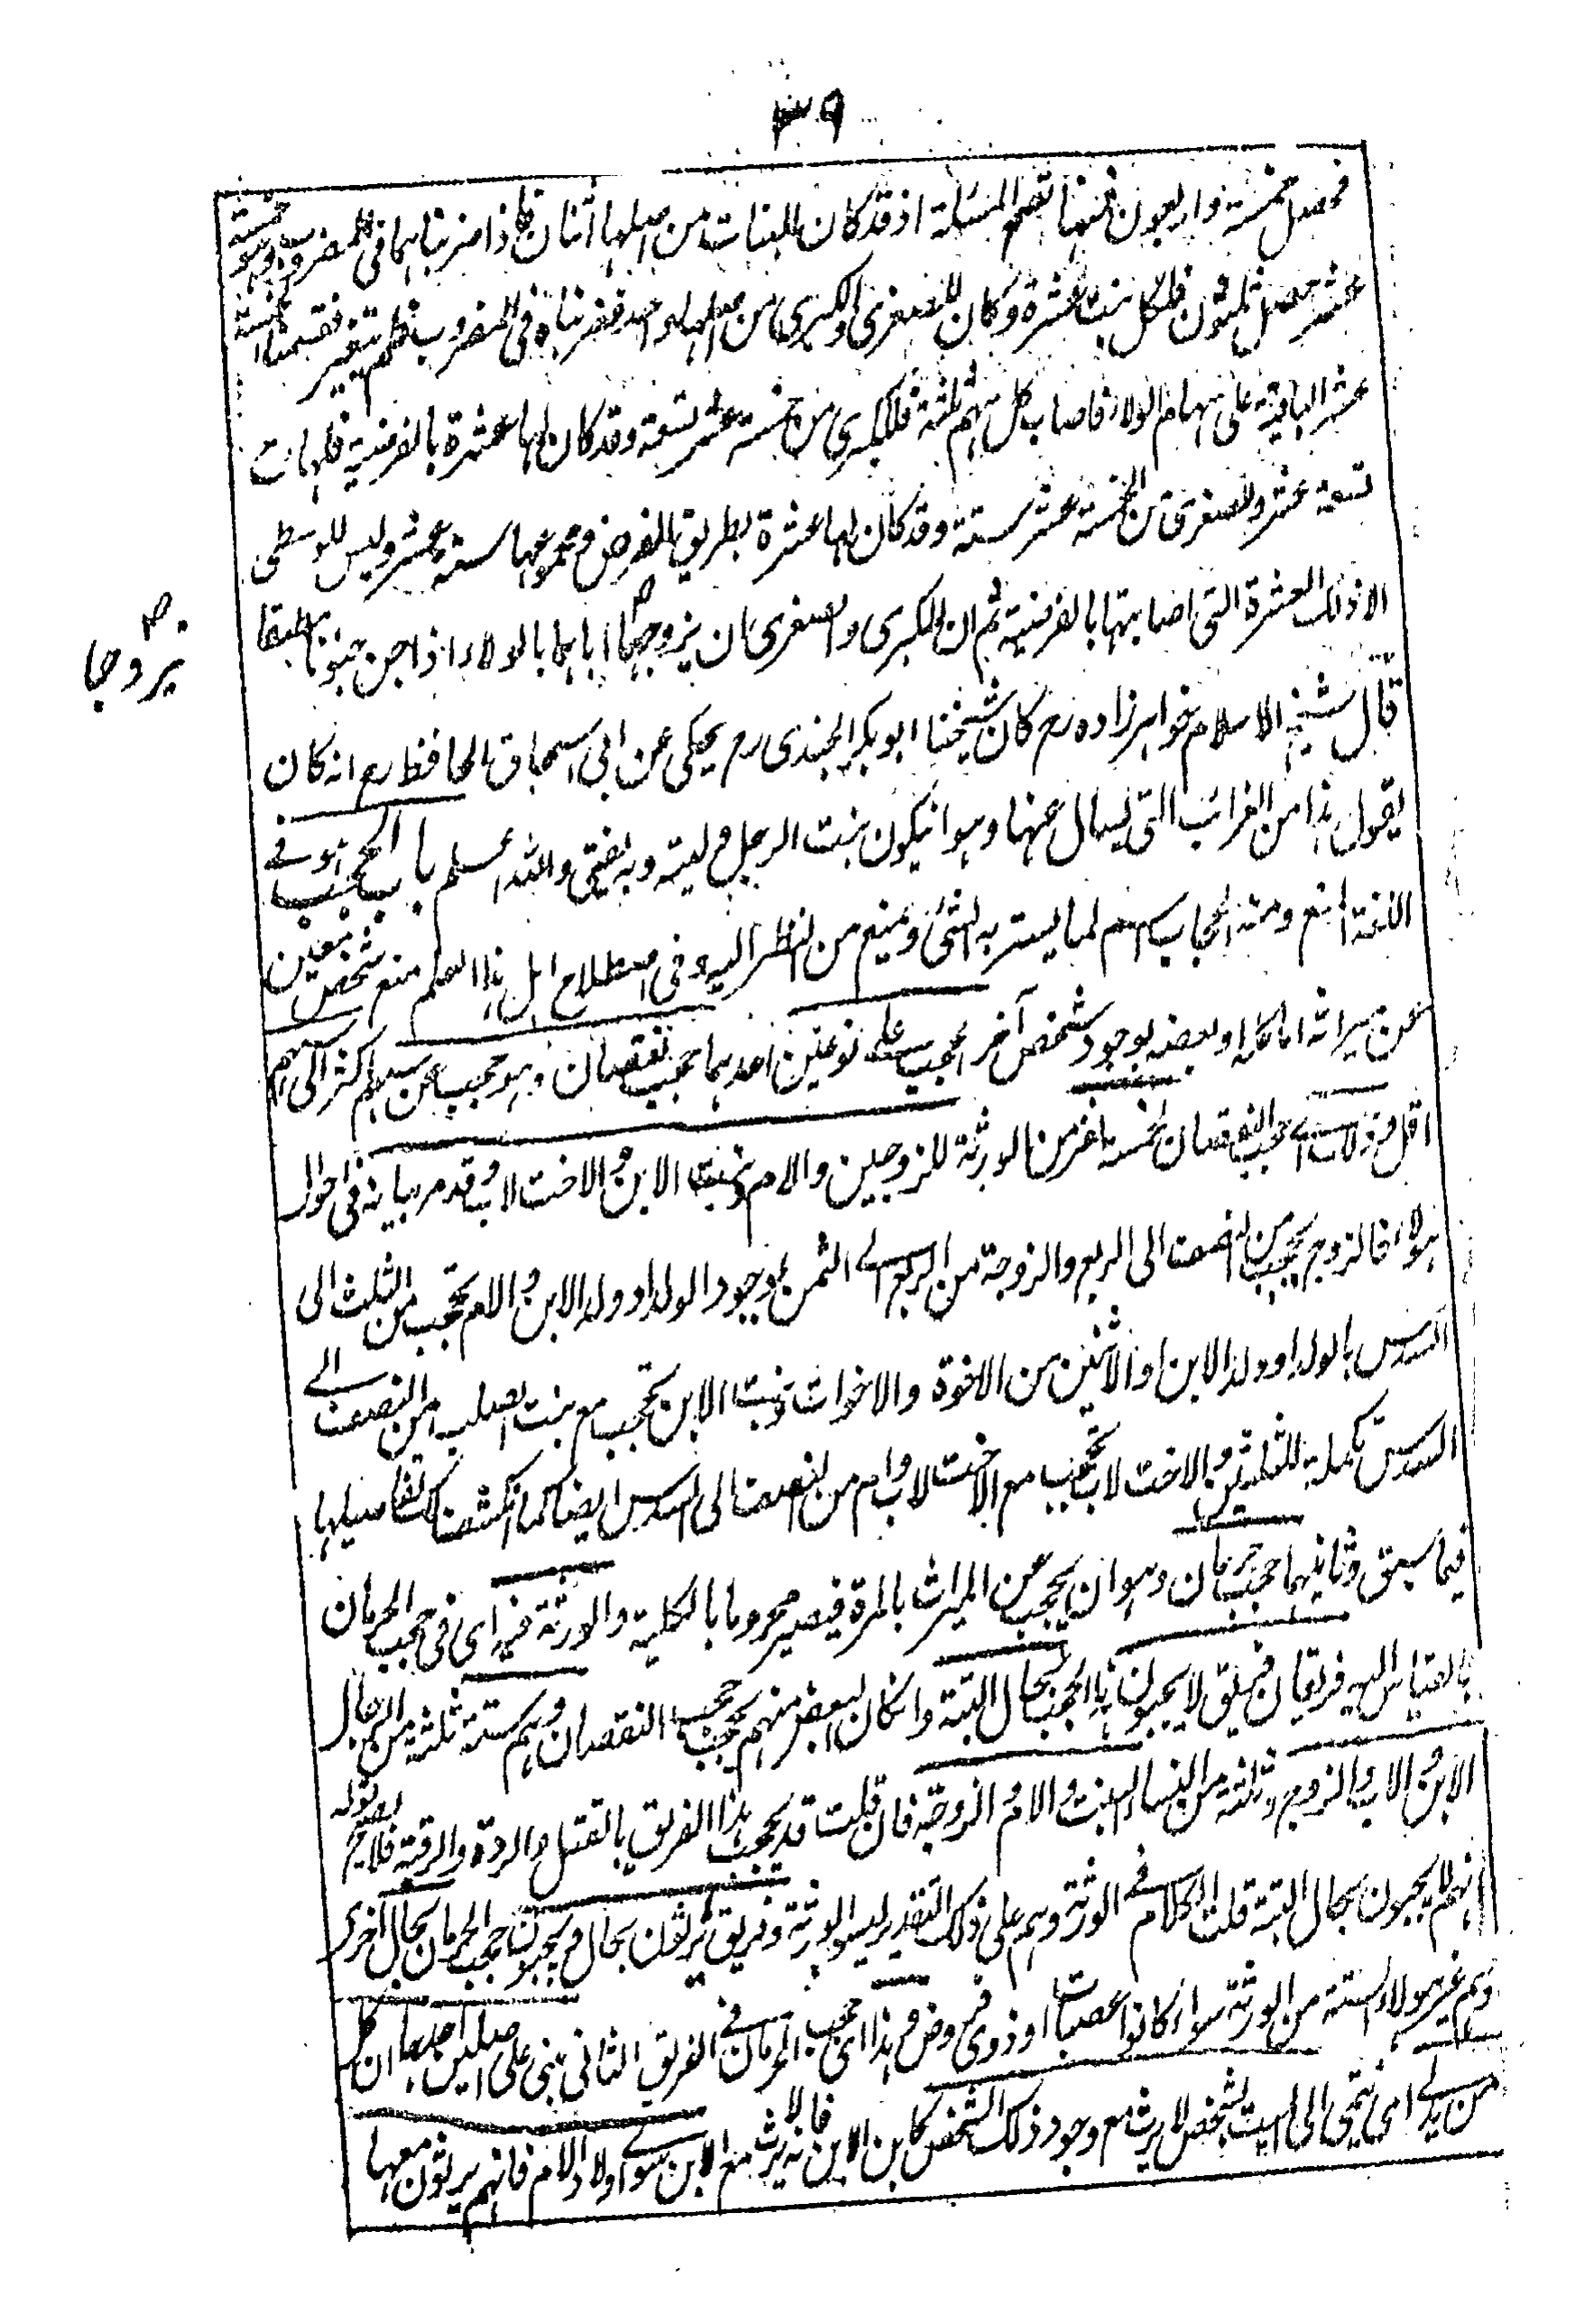 ٣٩
فحصل خمسة واربعون فمنها تصح المسئلة اذ قد كان للبنات من اصلها اثنان فاذا ضربناهما في المضروب وهو خمسة
عشر حصل ثلثون فلكل بنت عشرة وكان للصغرى والكبرى من اصلها واحد فضربناه في المضروب فلم يتغير فقسمنا الخمسة
عشر الباقية على سهام الولاء فاصاب كل سهم ثلثة فللكبرى من خمسة عشر تسعة وقد كان لها عشرة بالفرضية فلها
تسعة عشر وللصغرى من الخمسة عشر ستة وقد كان لها عشرة بطريق الفرض فمجموعها ستة عشر وليس للوسطى
الا ذلك العشرة التي اصابتها بالفرضية ثم ان للكبرى والصغرى ان يزوجهما اباهما بالولاء اذا جن جنونا مطبقا
يزوجا
قال شيخ الاسلام خواهر زاده رح كان شيخنا ابو بكر الجندي رح يحكى عن ابي اسحاق الحافظ رح انه كان
يقول هذا من الغرائب التي يسال عنها وهو ان يكون بنت الرجل وليته وبه يفتى والله اعلم باب الحجب هو في
اللغة المنع ومنه الحجاب اسم لما يستر به الشئ ويمنع من النظر اليه وفي اصطلاح اهل هذا العلم منع شخص معين
عن ميراثه اما كله او بعضه بوجود شخص آخر الحجب على نوعين احدهما حجب نقصان وهو حجب عن سهم اكثر الى سهم
اقل وذلك اي حجب النقصان لخمسة نفر من الورثة للزوجين والام وبنت الابن والاخت لاب وقد مر بيانه في احوال
هؤلاء فالزوج يحجب من النصف الى الربع والزوجة من الربع الى الثمن بوجود الولد او ولد الابن والام تحجب من الثلث الى
السدس بالولد او ولد الابن او الاثنين من الاخوة والاخوات وبنت الابن تحجب مع بنت الصلب من النصف الى
السدس تكملة للثلثين والاخت لاب تحجب مع الاخت لاب وام من النصف الى السدس ايضا كما انكشف لك تفاصيلها
فيما سبق وثانيهما حجب حرمان وهو ان يحجب عن الميراث بالمرة فيصير محروما بالكلية والورثة فيه اي في حجب الحرمان
بالقياس اليه فريقان فريق لا يحجبون هذا الحجب بحال البتة وان كان لبعض منهم يحجب حجب النقصان وهم ستة ثلثة من الرجال
الابن والاب والزوج وثلثة من النساء البنت والام والزوجة فان قلت قد يحجب هذا الفريق بالقتل والردة والرقية فلا يصح قوله
انهم لا يحجبون بحال البتة قلت الكلام في الورثة وهم على ذلك التقدير ليسوا بورثة وفريق يرثون بحال ويحجبون حجب الحرمان بحال اخرى
وهم غير هولاء الستة من الورثة سواء كانوا عصبات او ذوي فروض وهذا اي حجب الحرمان في الفريق الثاني مبنى على اصلين احدهما ان كل
من يدلي اي ينتمى الى الميت بشخص لا يرث مع وجود ذلك الشخص كابن الابن فانه لا يرث مع الابن سوى اولاد الام فانهم يرثون معها